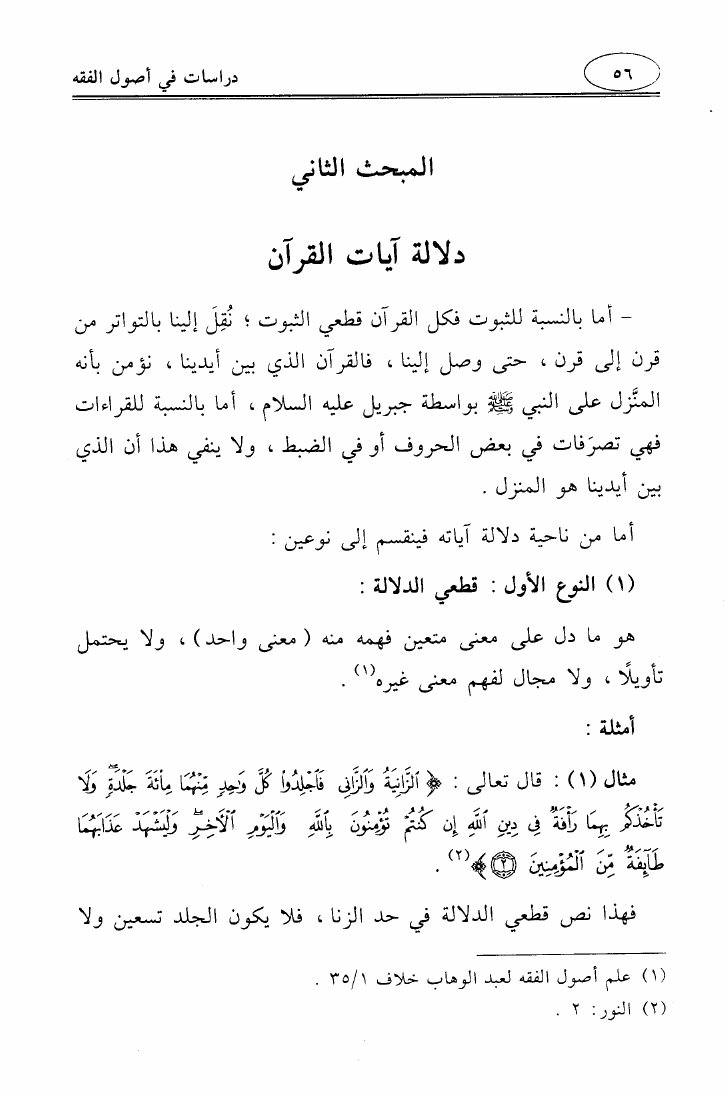 ٥٦
دراسات في أصول الفقه
المبحث الثاني
دلالة آيات القرآن
– أما بالنسبة للثبوت فكل القرآن قطعي الثبوت ؛ نُقِلَ إلينا بالتواتر من
قرن إلى قرن ، حتى وصل إلينا ، فالقرآن الذي بين أيدينا ، نؤمن بأنه
المنَّزل على النبي ﷺ بواسطة جبريل عليه السلام ، أما بالنسبة للقراءات
فهي تصرَفات في بعض الحروف أو في الضبط ، ولا ينفي هذا أن الذي
بين أيدينا هو المنزل .
أما من ناحية دلالة آياته فينقسم إلى نوعين :
(١) النوع الأول : قطعي الدلالة :
هو ما دل على معنى متعين فهمه منه ( معنى واحد ) ، ولا يحتمل
تأويلًا ، ولا مجال لفهم معنى غيره(١) .
أمثلة :
مثال (١) : قال تعالى : ﴿ ٱلزَّانِيَةُ وَٱلزَّانِى فَٱجْلِدُوا۟ كُلَّ وَٰحِدٍ مِّنْهُمَا مِا۟ئَةَ جَلْدَةٍ ۖ وَلَا
تَأْخُذْكُم بِهِمَا رَأْفَةٌ فِى دِينِ ٱللَّهِ إِن كُنتُمْ تُؤْمِنُونَ بِٱللَّهِ وَٱلْيَوْمِ ٱلْءَاخِرِ ۖ وَلْيَشْهَدْ عَذَابَهُمَا
طَآئِفَةٌ مِّنَ ٱلْمُؤْمِنِينَ ۝٢ ﴾(٢) .
فهذا نص قطعي الدلالة في حد الزنا ، فلا يكون الجلد تسعين ولا
(١) علم أصول الفقه لعبد الوهاب خلاف ٣٥/١ .
(٢) النور: ٢ .